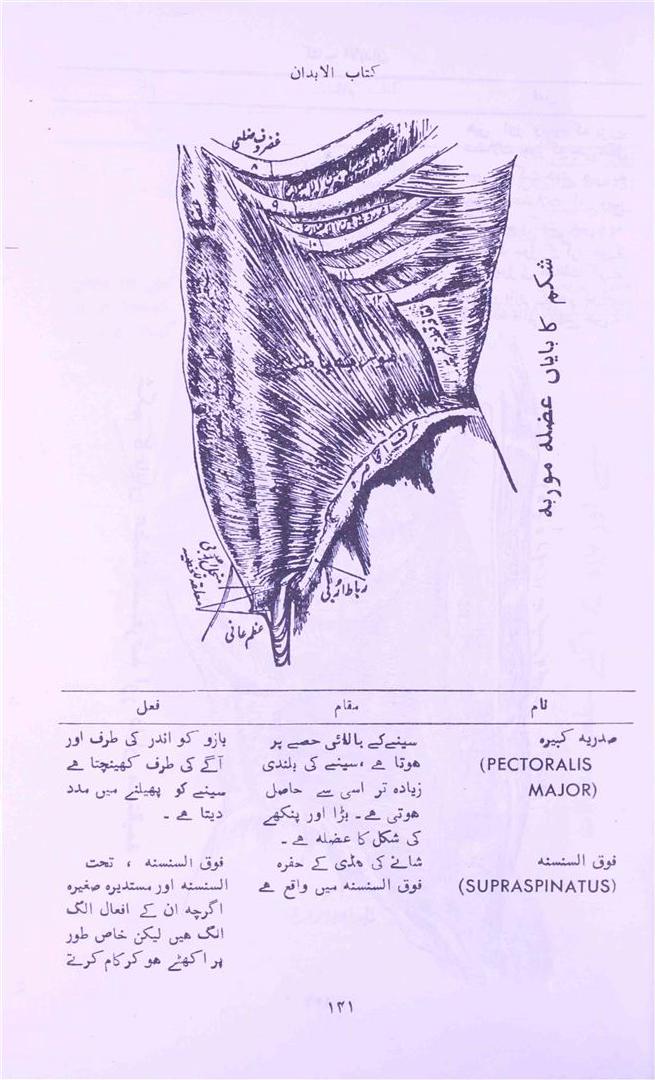 کتاب الابدان
غضروف ضلعی
۸
۹
۱۰
۱۱
۱۲
شکم کا بایاں عضلہ موربہ
رباط اربی
عظم عانی
نام مقام فعل
صدریہ کبیرہ سینے کے بالائی حصے پر بازو کو اندر کی طرف اور
(PECTORALIS ہوتا ہے ، سینے کی بلندی آگے کی طرف کھینچتا ہے
MAJOR) زیادہ تر اسی سے حاصل سینے کو پھیلنے میں مدد
ہوتی ہے۔ بڑا اور پنکھے دیتا ہے ۔
کی شکل کا عضلہ ہے ۔
فوق السنسنہ شانے کی ہڈی کے حفرہ فوق السنسنہ ، تحت
(SUPRASPINATUS) فوق السنسنہ میں واقع ہے السنسنہ اور مستدیرہ صغیرہ
اگرچہ ان کے افعال الگ
الگ ہیں لیکن خاص طور
پر اکھٹے ہو کر کام کرتے
۱۴۱